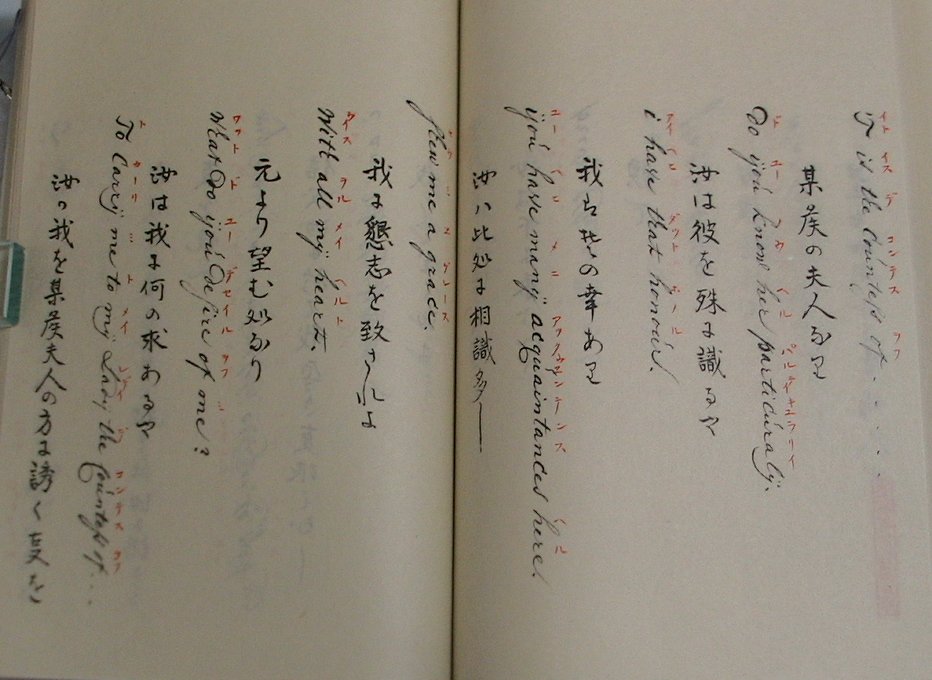 イト イス デ コンテス ヲフ
It is the Countess of . . . .
某矦の夫人なり
ド ユー ノウ ヘル パルティキュラーリイ
Do you know her particuraly.
汝は彼を殊に識るや
アイ ヘーブ ダット ヲーノル
i have that honoùr.
我も其の幸あり
ユー ヘーブ メニ アックウェンテンス ヘール
yoù have many acquaintances here.
汝ハ此処に相識多シ
シウ ミー エ グレース
Shew me a grace.
我に懇志を致
ウイス ヲル メイ ハルト
With all my heart.
元より望む処なり
ワット ド ユー デセイル ヲフ ミー
What do yoù desire of me?
汝は我に何の求あるや
ト カーリ ミー ト メイ レディ デ コンテス ヲフ
To Carry me to my Lady the Coùntess of . . .
汝の我を某矦夫人の方に誘く を